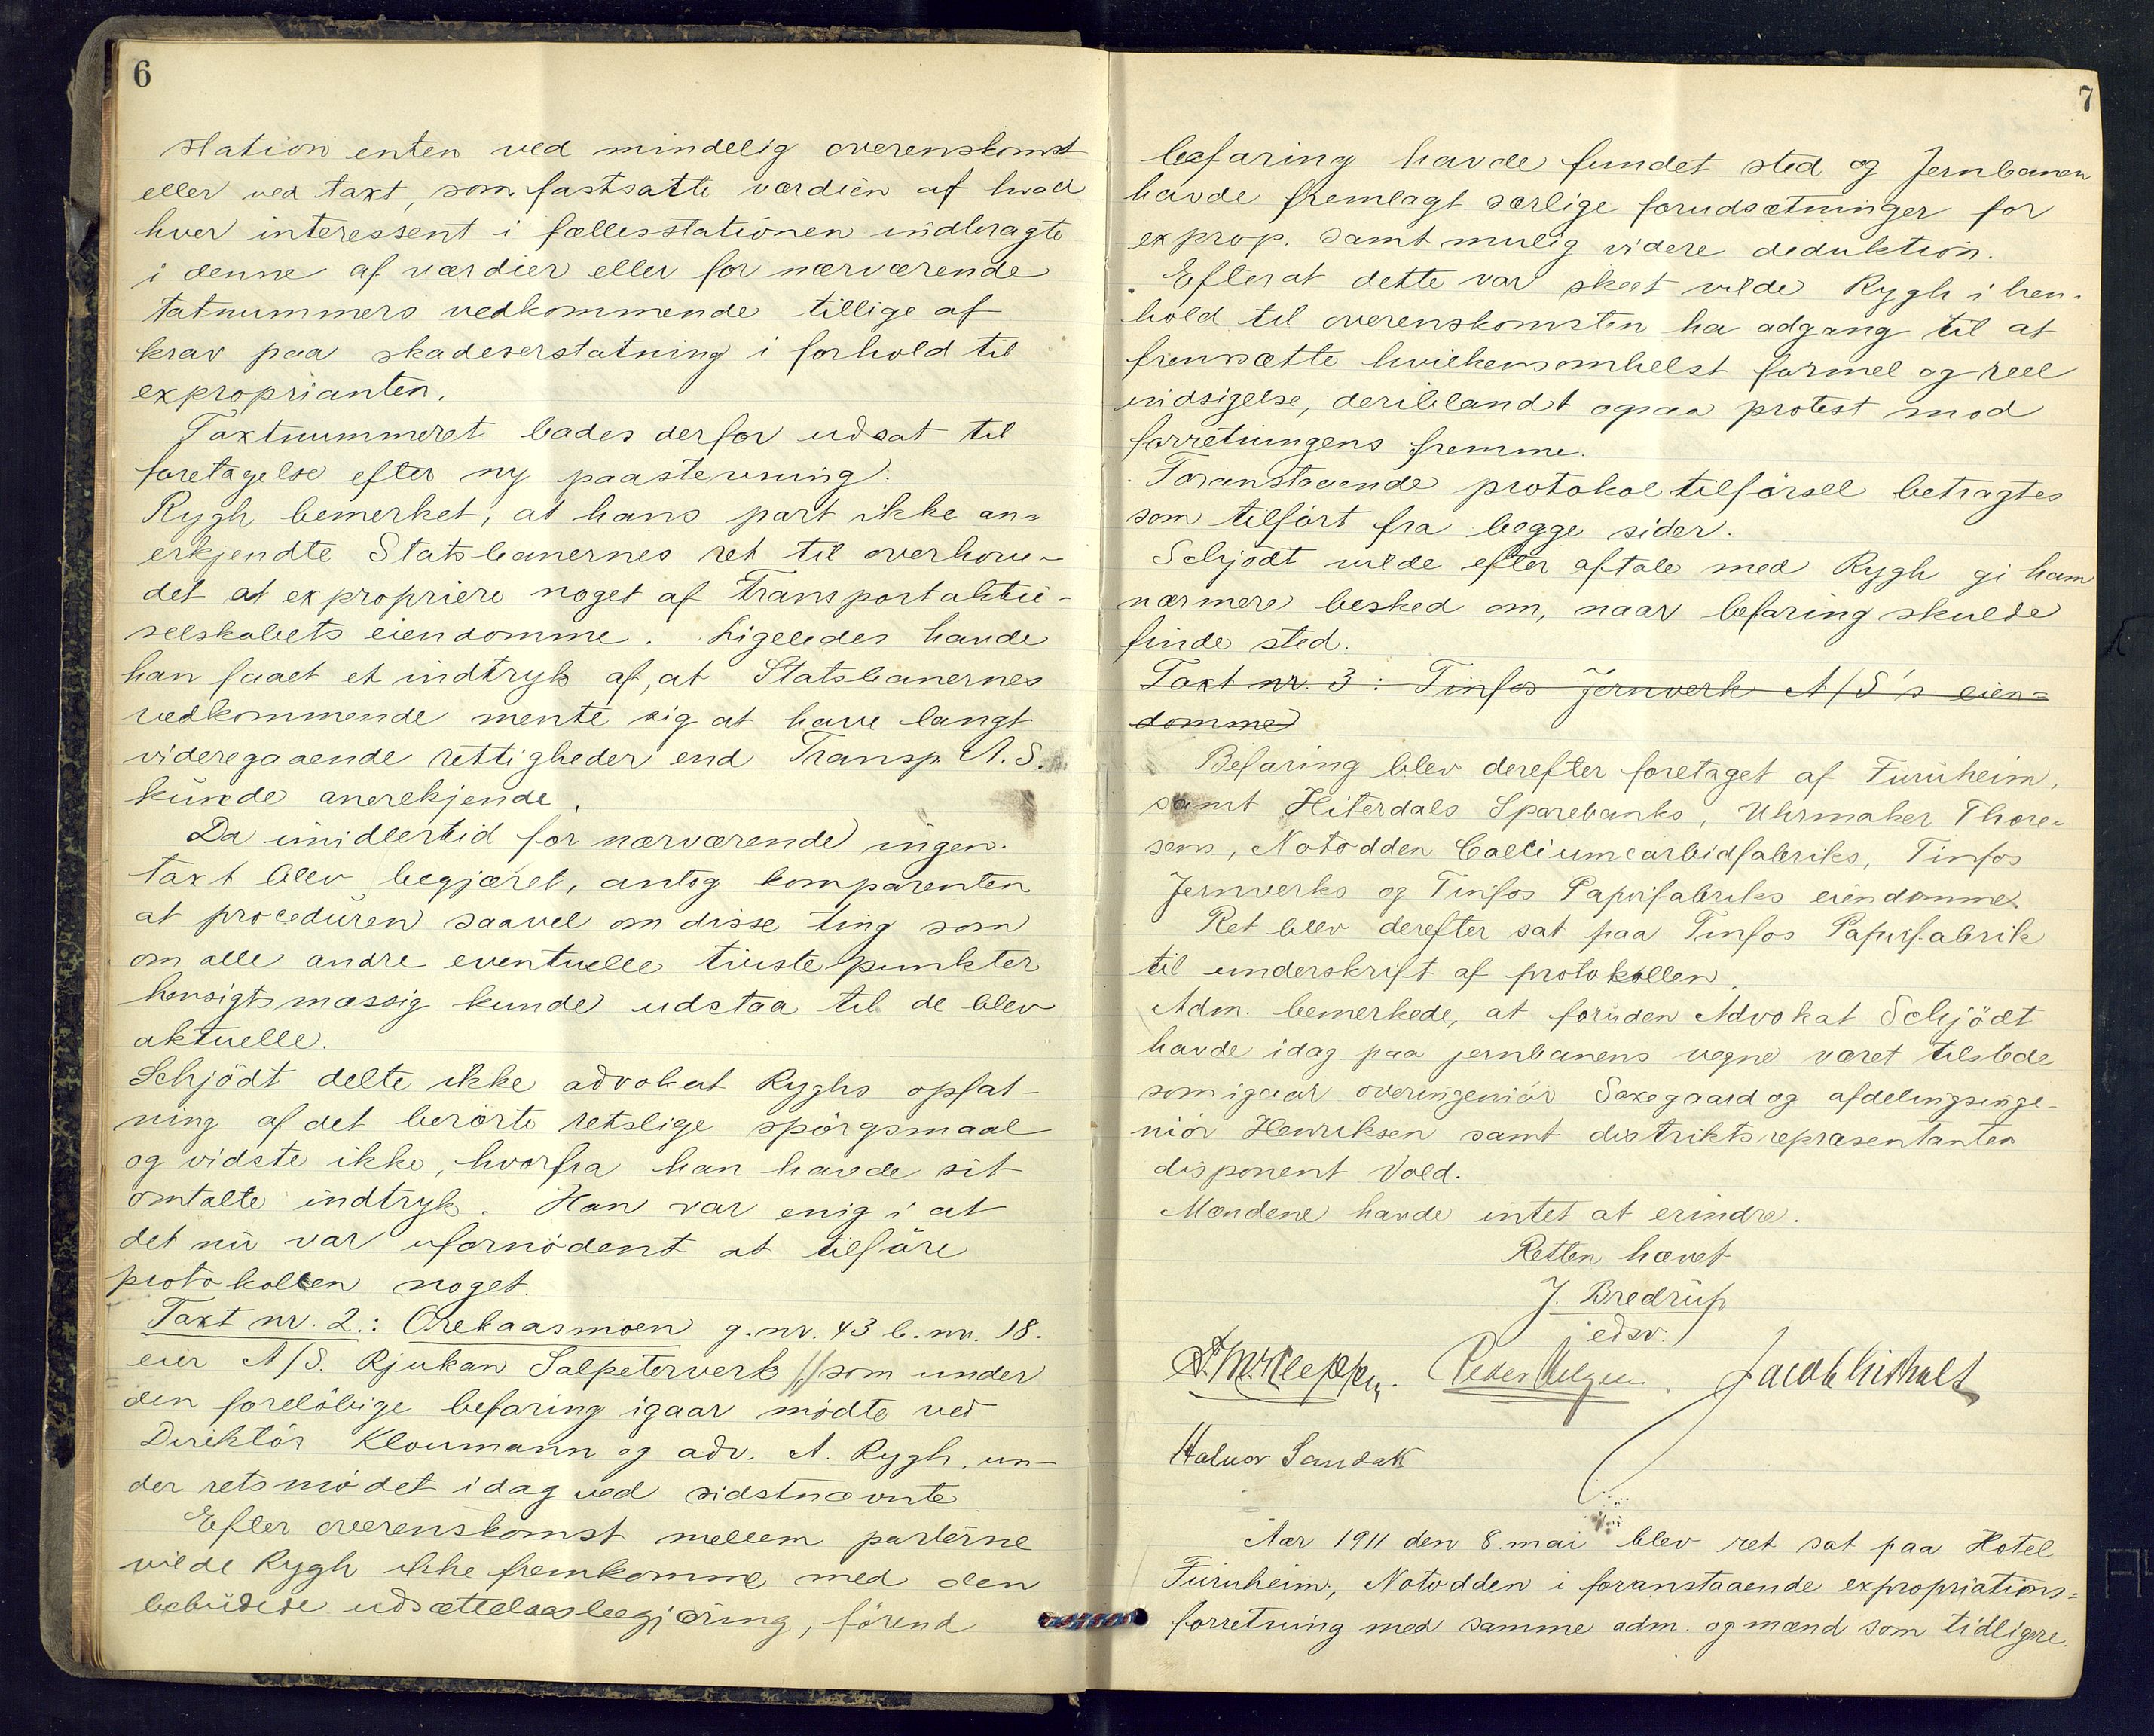 6
station enten ved mindelig overenskomst
eller ved takt, som fastsatte værdien af hvad
hver interessent i fællesstationen indbragte
i denne af værdier eller for nærværende
taxtnummers vedkommende tillige af
krav paa skadeserstatning i forhold til
exproprianten.
Taxtnummeret bades derfor udsat til
foretagelse efter ny paastevning.
Rygh bemerket, at hans part ikke an=
erkjendte Statsbanernes ret til overhove-
det at expropriere noget af Transportaktie-
selskabets eiendomme. Ligeledes havde
han faaet et indtryk af, at Statsbanernes
vedkommende mente sig at have langt
videregaaende rettigheder end Transp. A.S.
kunde anerekjende.
Da imidlertid for nærværende ingen
taxt blev begjæret, antog komparenten
at proceduren saavel om disse ting som
om alle andre eventuelle tvistepunkter
hensigtsmæssig kunde udstaa til de blev
aktuelle.
Schjödt delte ikke advokat Ryghs opfat-
ning af det berörte retslige spörgsmaal
og vidste ikke, hvorfra han havde sit
omtalte indtryk. Han var enig i at
det nu var ufornödent at tilföre
protokollen noget.
Taxt nr. 2.: Orebaasmoen g.nr. 43 b.nr. 18.
eier A/S. Rjukan Salpeterverk // som under
den forelöbige befaring igaar mödte ved
Direktör Kloumann og adv. A. Rygh, un-
der retsmödet idag ved sidstnævnte
Efter overenskomst mellem parterne
vilde Rygh ikke fremkomme med den
bebudede udsættelsesbegjæring, förend
7
befaring havde fundet sted og Jernbanen
havde fremlagt særlige forudsætninger for
exprop. samt mulig videre deduktion.
Efterat dette var skeet vilde Rygh i hen-
hold til overenskomsten ha adgang til at
fremsætte hvilkensomhelst formel og reel
indsigelse, deriblandt ogsaa protest mod
forretningens fremme.
Foranstaaende protokoltilförsel betragtes
som tilfört fra begge sider.
Schjödt vilde efter aftale med Rygh gi ham
nærmere besked om, naar befaring skulde
finde sted.
Taxt nr. 3: Tinfos Jernverk A/S's eien=
domme
Befaring blev derefter foretaget af Furuheim,
samt Hiterdals Sparebanks, Uhrmaker Thore-
sens, Notodden Calciumcarbidfabriks, Tinfos
Jernverks og Tinfos Papirfabriks eiendomme.
Ret blev derefter sat paa Tinfos Papirfabrik
til underskrift af protokollen.
Adm. bemerkede, at foruden Advokat Schjödt
havde idag paa jernbanens vegne været tilstede
som igaar overingeniör Saxegaard og afdelingsinge-
niör Henriksen samt distriktsrepræsentanten
disponent Vold.
Mændene havde intet at erindre.
Retten hævet
J. Bredrup
edsv.
Halvor Sandak
Aar 1911 den 8. mai blev ret sat paa Hotel
Furuheim, Notodden i foranstaaende expropriations=
forretning med samme adm. og mænd som tidligere.